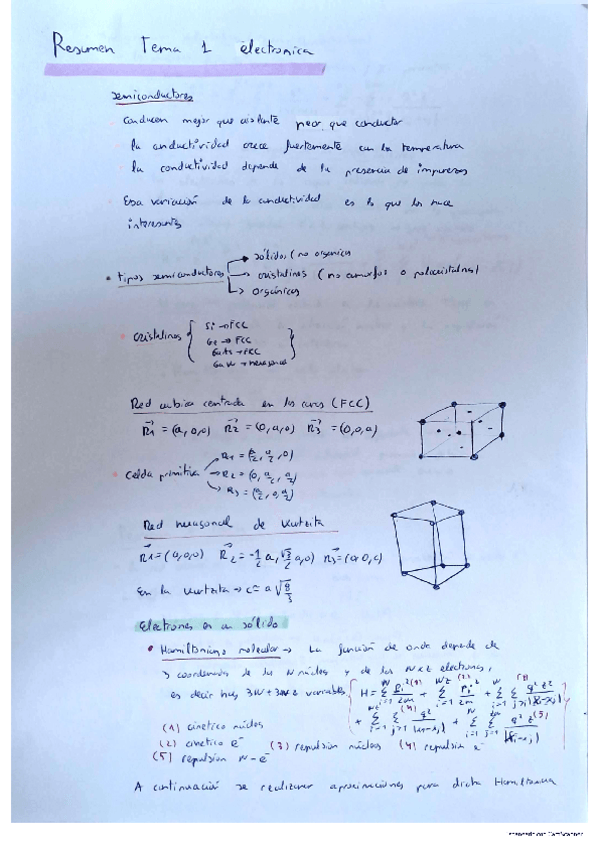 Resumen Tema 1 electronica
semiconductores
Conducen mejor que aislante peor que conductor
la conductividad crece fuertemente con la temperatura
la conductividad depende de la presencia de impurezas
Esa variación de la conductividad es lo que los hace
interesantes
sólidos (no organicos
tipos semiconductores → cristalinos (no amorfos o policristalinos)
orgánicos
cristalinos
Si → FCC
Ge → FCC
GaAs → FCC
GaN → hexagonal
Red cubica centrada en las caras (FCC)
R1 = (a,0,0) R2 = (0,a,0) R3 = (0,0,a)
R1 = (a/2, a/2, 0)
Celda primitiva → R2 = (0, a/2, a/2)
R3 = (a/2, 0, a/2)
Red hexagonal de wurtzita
R1 = (a,0,0) R2 = -1/2 a, √3/2 a, 0) R3 =
En la wurtzita → c = a √8/3
Electrones en un sólido
Hamiltoniano molecular → La función de onda depende de
3 coordenadas de los N núcleos y de los N×Z electrones,
es decir hay 3N+3NZ variables
(1) cinetico núcleos
(2) cinetico e⁻ (3) repulsión núcleos (4) repulsión e⁻
(5) repulsión N-e⁻
A continuación se realizaran aproximaciones para dicho Hamiltoniano